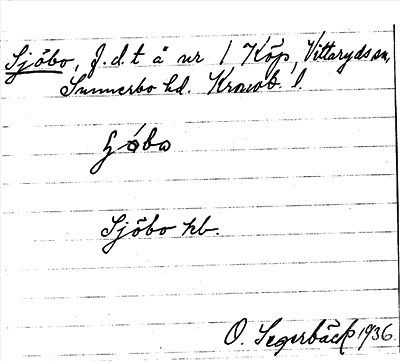 Sjöbo, f.d. t å nr 1 Köp, Vittaryds sn,
Sunnerbo hd. Kronob. l.
Sjöbo hb.
O. Segerbäck 1936.